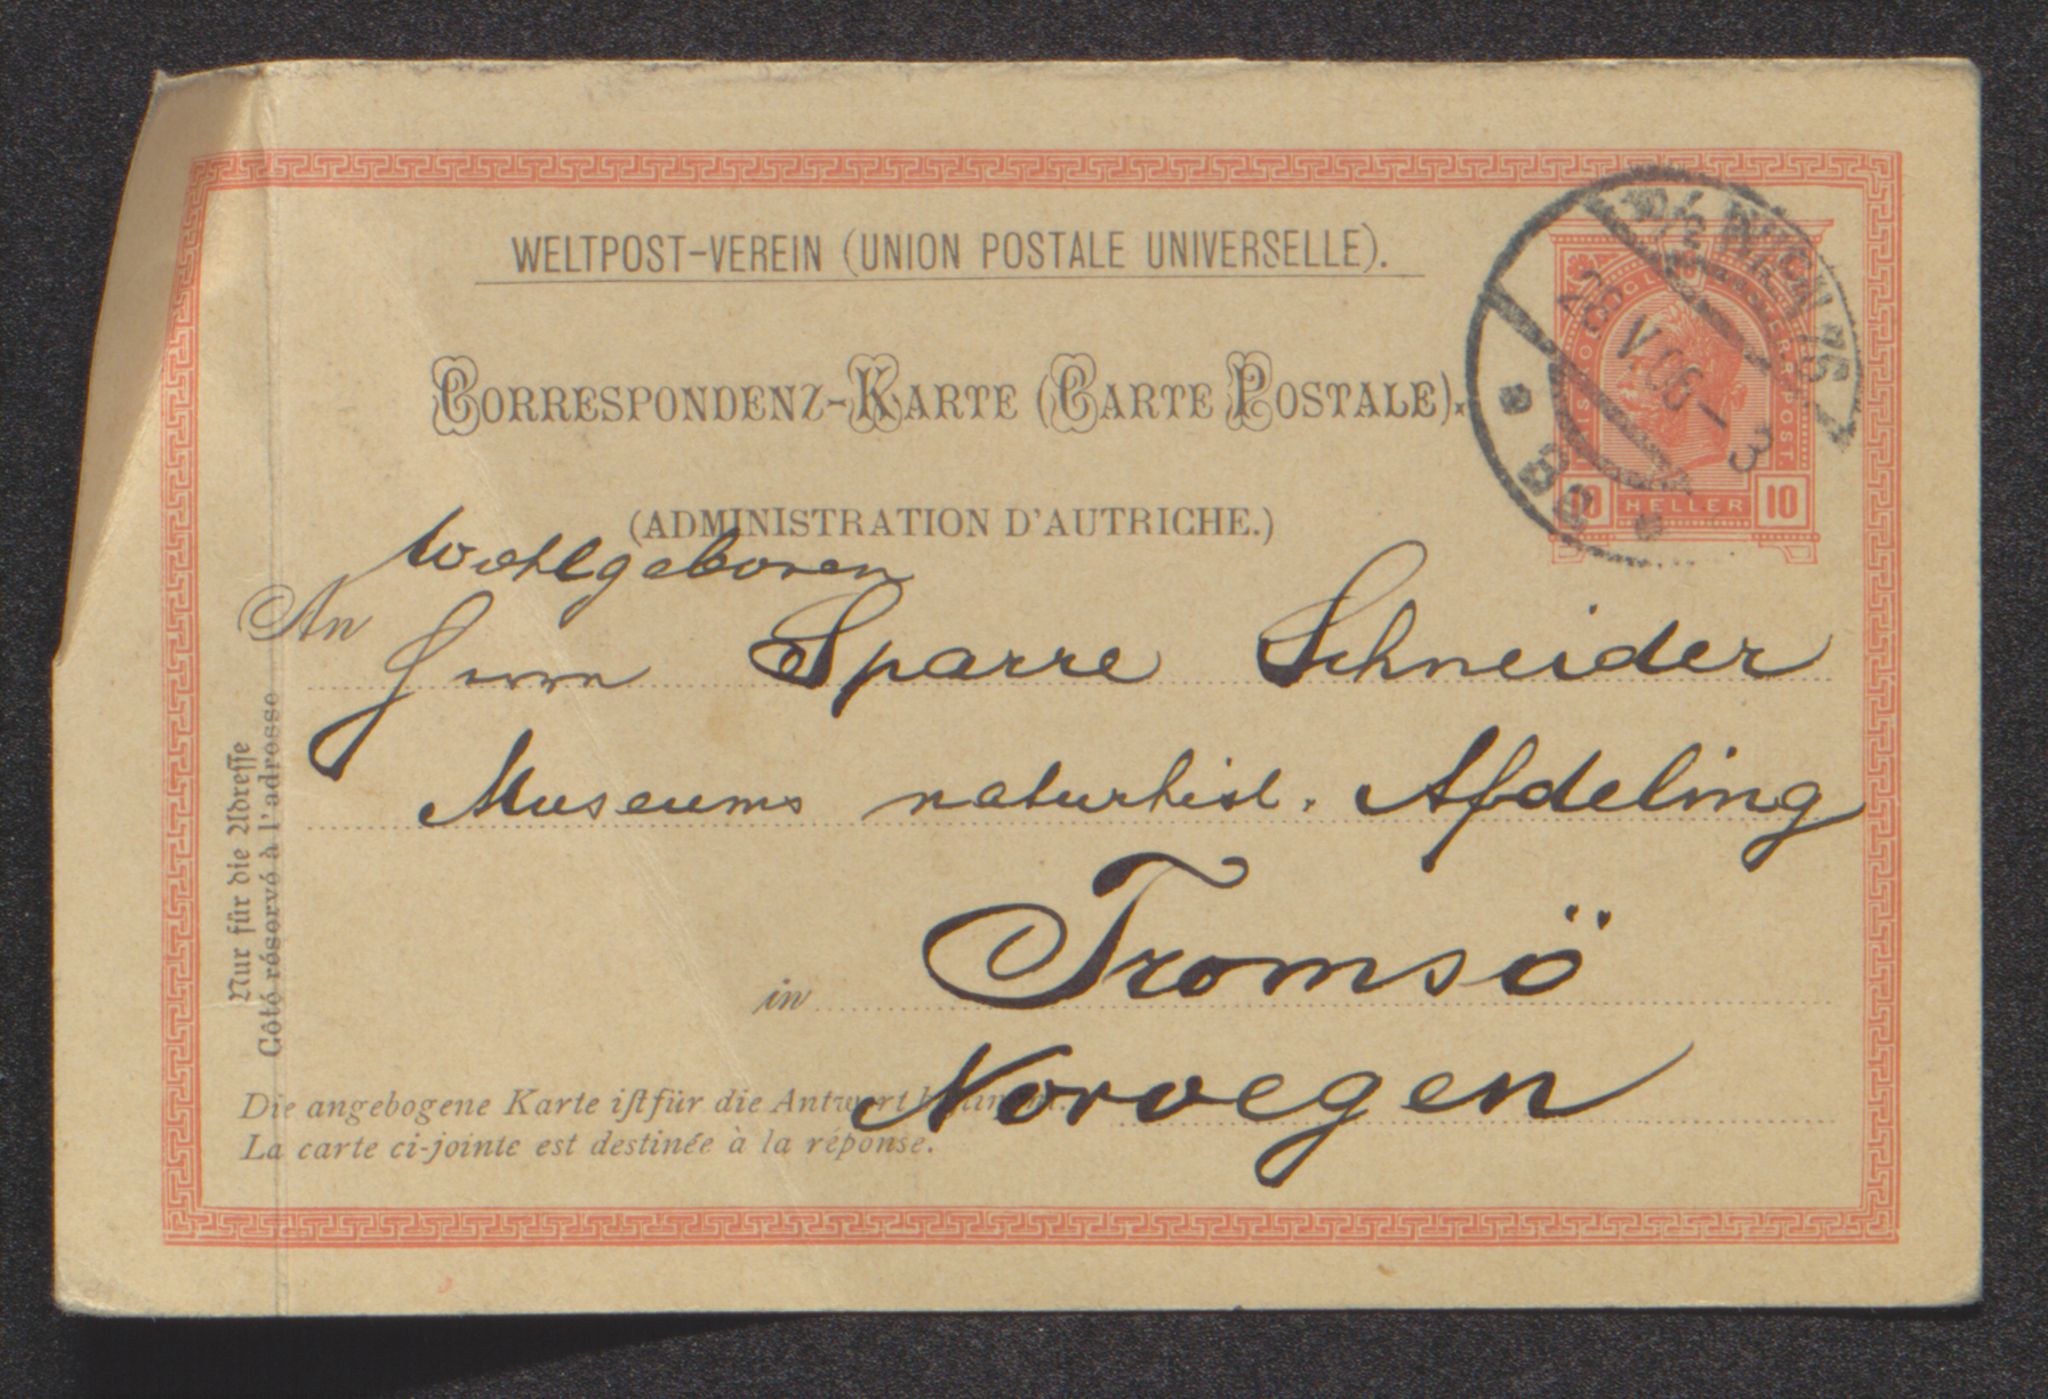 WELTPOST-VEREIN (UNION POSTALE UNIVERSELLE).
CORRESPONDENZ-KARTE (CARTE POSTALE).
(ADMINISTRATION D'AUTRICHE.)
WIEN 76
28 V 06-3
10 HELLER 10
Wohlgeboren
An Herrn Sparre Schneider
Museums naturhist. Afdeling
in Tromsö
Norvegen
Nur für die Adresse
Côté réservé à l'adresse
Die angebogene Karte ist für die Antwort bestimmt.
La carte ci-jointe est destinée à la réponse.